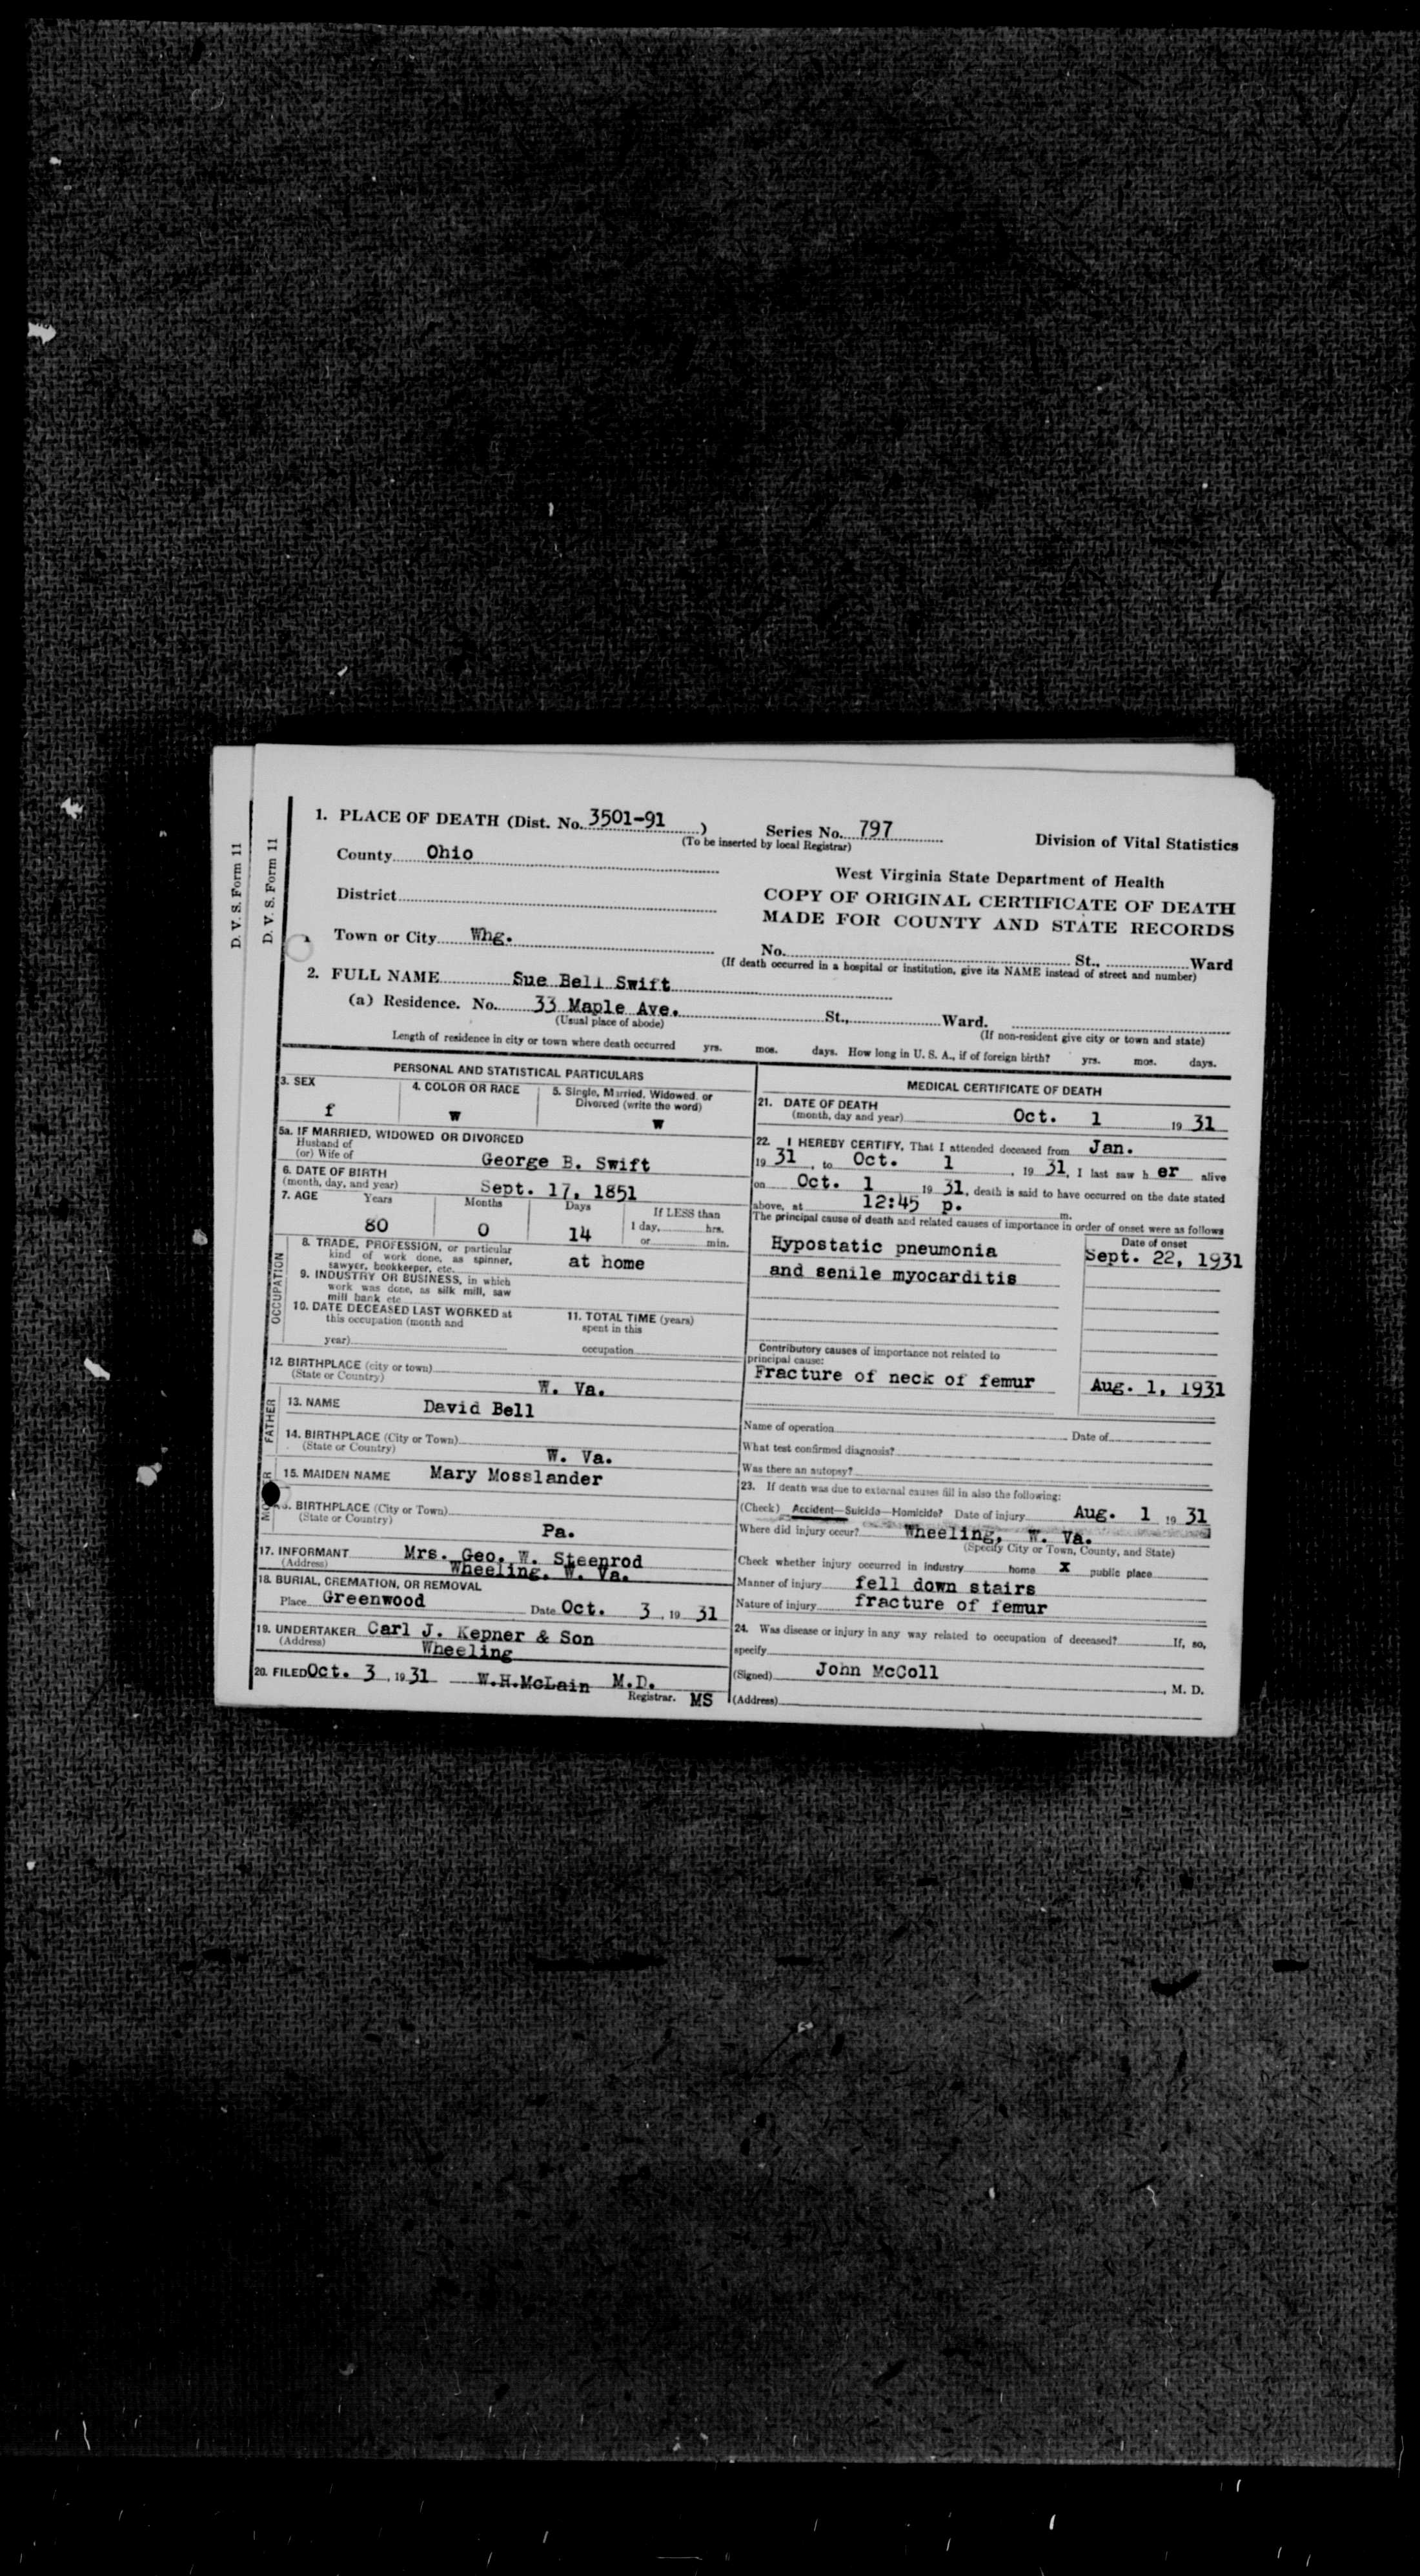 D. V. S. Form 11
D. V. S. Form 11
1. PLACE OF DEATH (Dist. No. 3501-91 ) Series No. 797 Division of Vital Statistics
(To be inserted by local Registrar)
County Ohio
West Virginia State Department of Health
District
COPY OF ORIGINAL CERTIFICATE OF DEATH
MADE FOR COUNTY AND STATE RECORDS
Town or City Whg.
No. St., Ward
(If death occurred in a hospital or institution, give its NAME instead of street and number)
2. FULL NAME Sue Bell Swift
(a) Residence. No. 33 Maple Ave. St., Ward.
(Usual place of abode) (If non-resident give city or town and state)
Length of residence in city or town where death occurred yrs. mos. days. How long in U. S. A., if of foreign birth? yrs. mos. days.
PERSONAL AND STATISTICAL PARTICULARS
3. SEX 4. COLOR OR RACE 5. Single, Married, Widowed, or
Divorced (write the word)
f w w
5a. IF MARRIED, WIDOWED OR DIVORCED
Husband of
(or) Wife of George B. Swift
6. DATE OF BIRTH
(month, day, and year) Sept. 17, 1851
7. AGE Years Months Days If LESS than
1 day, hrs.
80 0 14 or min.
OCCUPATION
8. TRADE, PROFESSION, or particular
kind of work done, as spinner,
sawyer, bookkeeper, etc. at home
9. INDUSTRY OR BUSINESS, in which
work was done, as silk mill, saw
mill bank etc
10. DATE DECEASED LAST WORKED at
this occupation (month and
year)
11. TOTAL TIME (years)
spent in this
occupation
12. BIRTHPLACE (city or town)
(State or Country) W. Va.
FATHER
13. NAME David Bell
14. BIRTHPLACE (City or Town)
(State or Country) W. Va.
15. MAIDEN NAME Mary Mosslander
BIRTHPLACE (City or Town)
(State or Country) Pa.
17. INFORMANT Mrs. Geo. W. Steenrod
(Address) Wheeling, W. Va.
18. BURIAL, CREMATION, OR REMOVAL
Place Greenwood Date Oct. 3, 19 31
19. UNDERTAKER Carl J. Kepner & Son
(Address) Wheeling
20. FILED Oct. 3, 19 31 W.H.McLain M.D.
Registrar. MS
MEDICAL CERTIFICATE OF DEATH
21. DATE OF DEATH
(month, day and year) Oct. 1 19 31
22. I HEREBY CERTIFY, That I attended deceased from Jan.
19 31, to Oct. 1, 19 31, I last saw h er alive
on Oct. 1 19 31, death is said to have occurred on the date stated
above, at 12:45 p. m.
The principal cause of death and related causes of importance in order of onset were as follows
Date of onset
Hypostatic pneumonia Sept. 22, 1931
and senile myocarditis
Contributory causes of importance not related to
principal cause:
Fracture of neck of femur Aug. 1, 1931
Name of operation Date of
What test confirmed diagnosis?
Was there an autopsy?
23. If death was due to external causes fill in also the following:
(Check) Accident—Suicide—Homicide? Date of injury Aug. 1 19 31
Where did injury occur? Wheeling, W. Va.
(Specify City or Town, County, and State)
Check whether injury occurred in industry home X public place
Manner of injury fell down stairs
Nature of injury fracture of femur
24. Was disease or injury in any way related to occupation of deceased? If, so,
specify
(Signed) John McColl, M. D.
(Address)